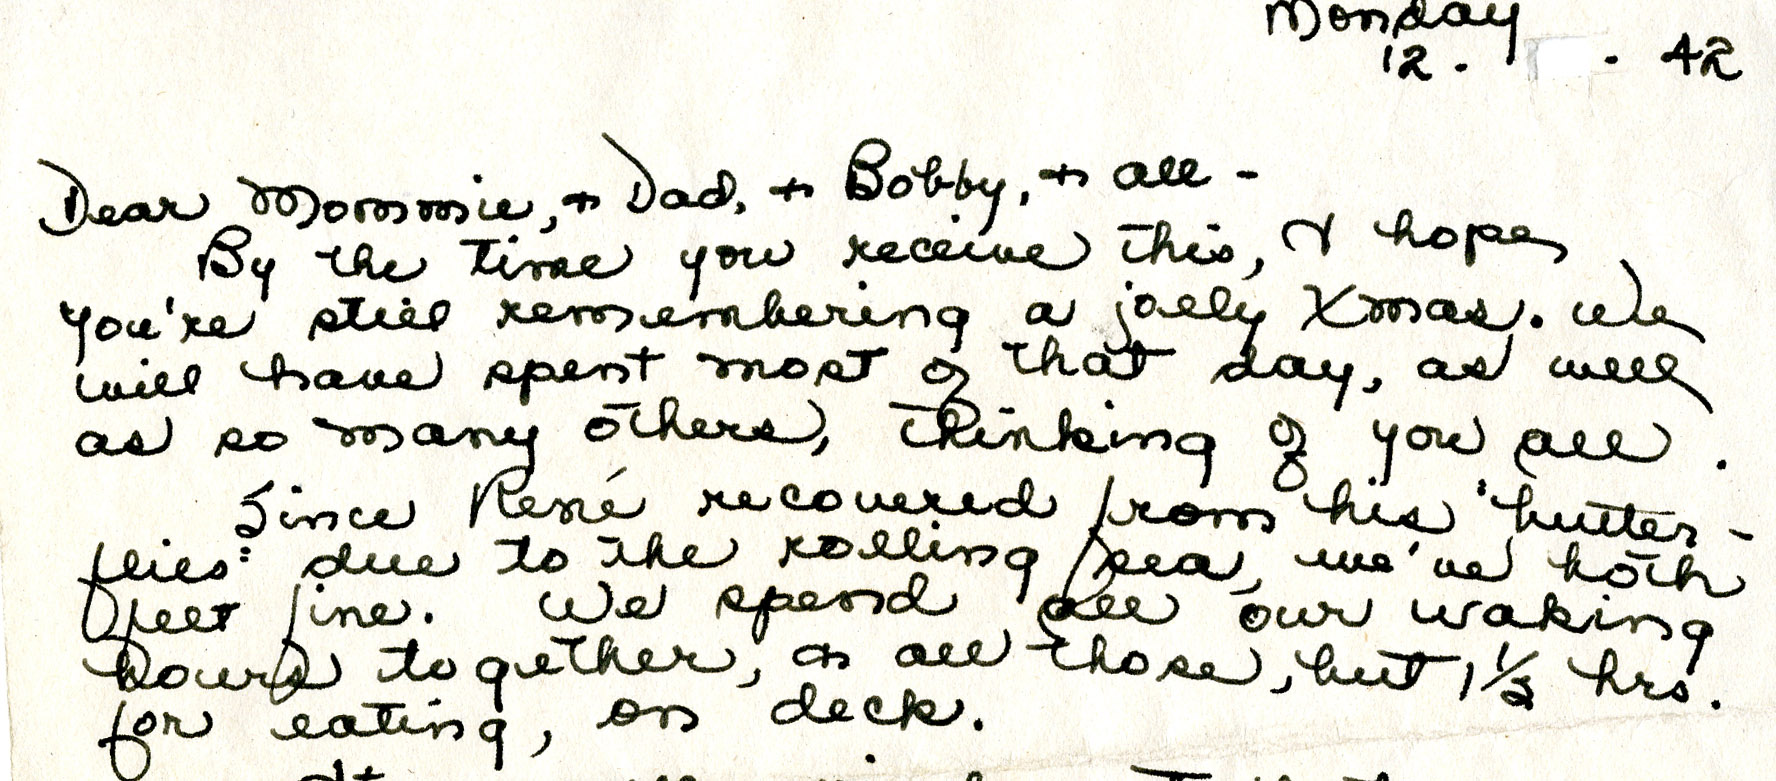 Monday
12. . 42
Dear Mommie, + Dad, + Bobby, + all -
By the time you receive this, I hope
you're still remembering a jolly Xmas. We
will have spent most of that day, as well
as so many others, thinking of you all.
Since René recovered from his "butter-
flies" due to the rolling sea, we've both
feet fine. We spend all our waking
hours together, + all those, but 1 1/2 hrs.
for eating, on deck.